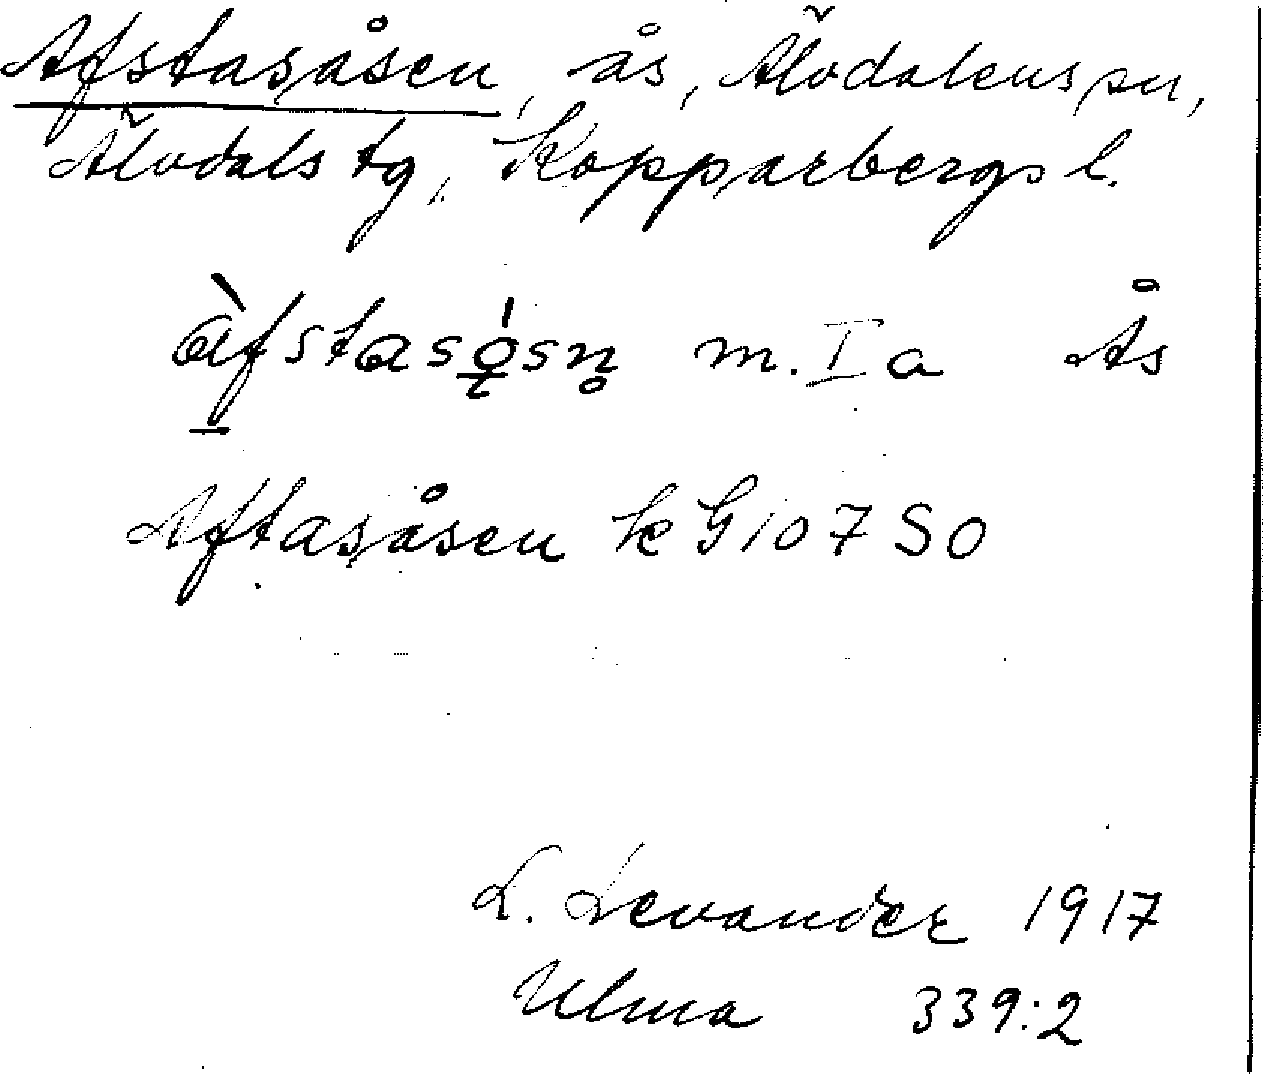 Afstasåsen, ås, Älvdalens sn,
Älvdals tg, Kopparbergs l.
àfstasǫ́sn̥ m. I a Ås
Aftasåsen k G107 SO
L. Levander 1917
Ulma 339:2